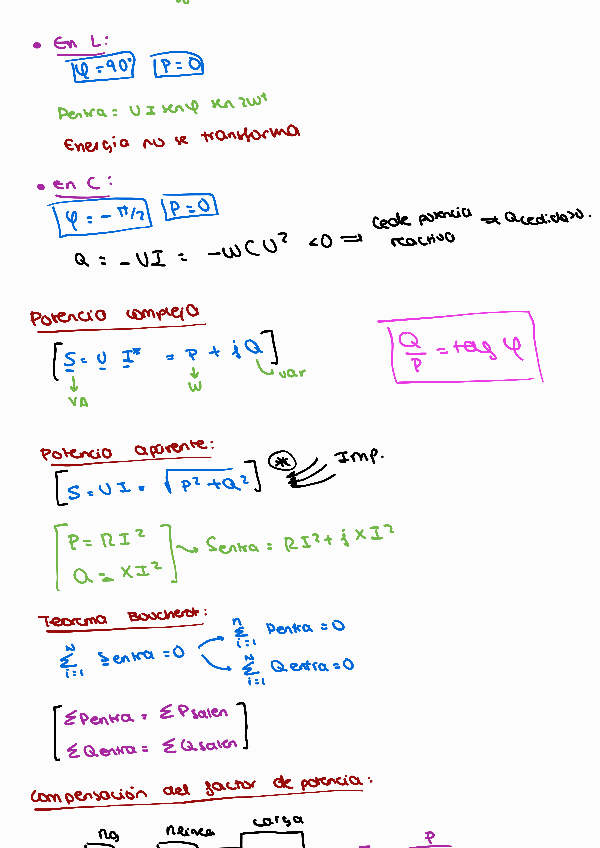 • En L:
φ = 90° P = 0
Pentra = UI sen φ sen 2wt
Energia no se transforma
• en C:
φ = - π/2 P = 0
Q = -UI = -WCU² <0 ⇒ Cede potencia reactiva ⇒ Qcedida>0.
Potencia compleja
[S = U I* = P + j Q]
VA W var
Q/P = tag φ
Potencia aparente:
[S = UI = √P² + Q²] * Imp.
[P = RI²
Q = XI²] → Sentra = RI² + j XI²
Teorema Boucherot:
N Σ i=1 Sentra = 0
n Σ i=1 Pentra = 0
N Σ i=1 Qentra = 0
[ΣPentra = ΣPsalen
ΣQentra = ΣQsalen]
Compensación del factor de potencia:
ng nlinea carga
= P